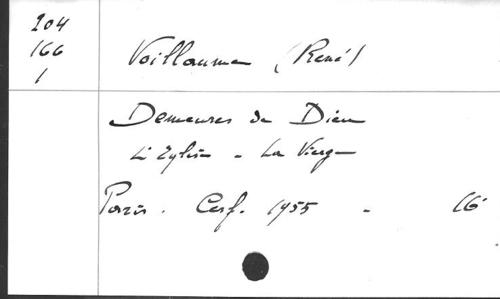 204
166
1
Voillaume (René)
Demeures de Dieu
L'Eglise - La Vierge
Paris. Cerf. 1955 - 16°